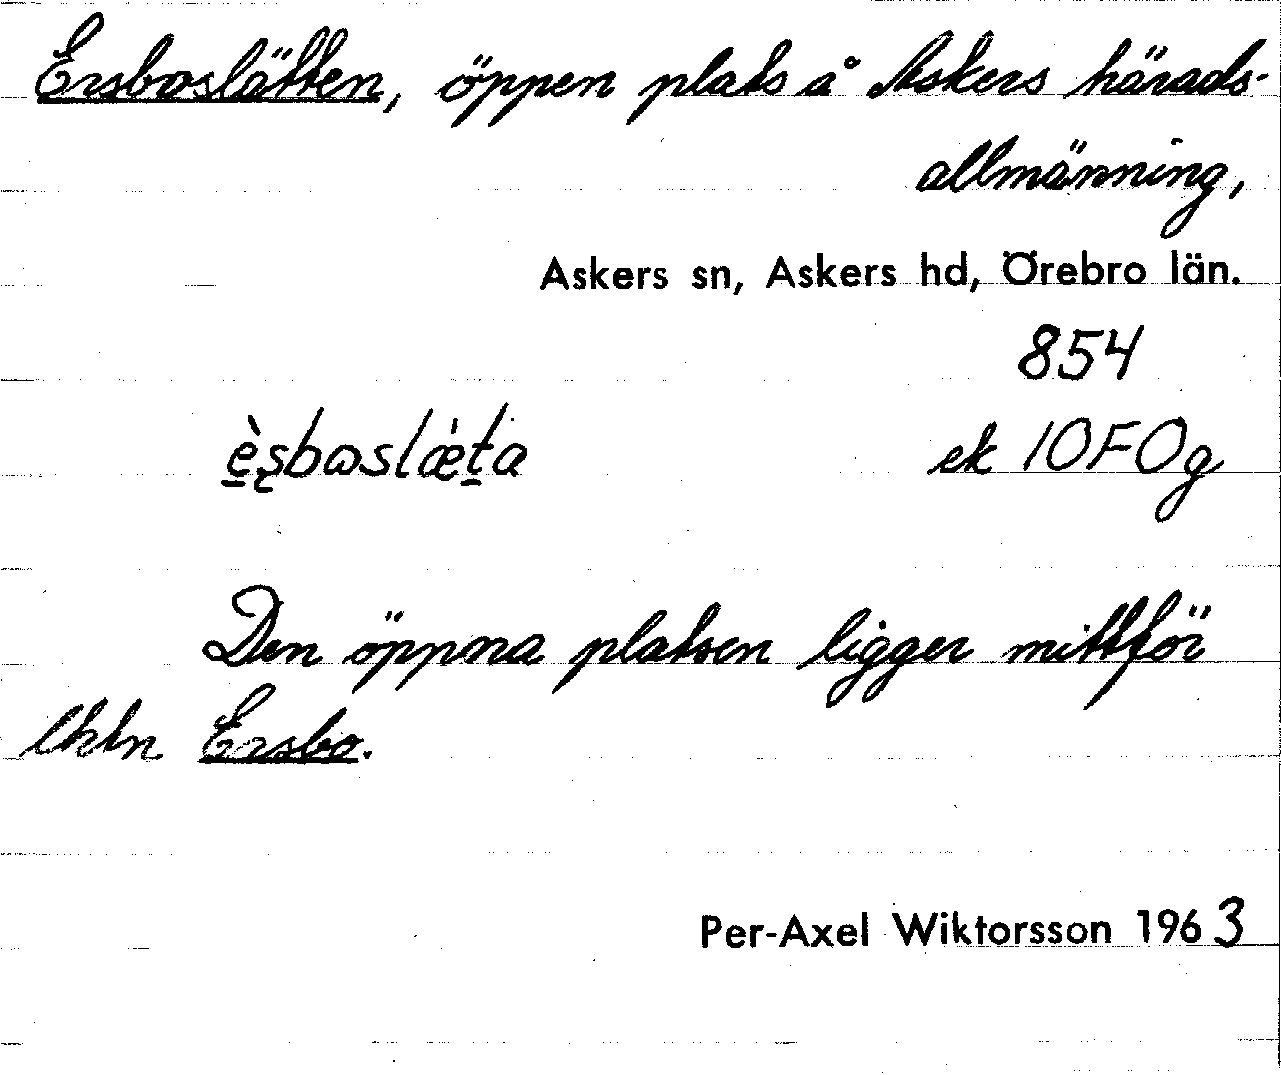 Ersboslätten, öppen plats å Askers härads-
allmänning,
Askers sn, Askers hd, Örebro län.
854
èsboslæ̀ta ek 10F0g
Den öppna platsen ligger mittför
lktn Ersbo.
Per-Axel Wiktorsson 1963